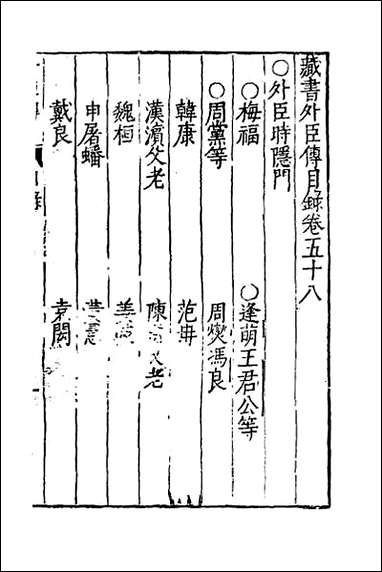 藏書外臣傳目錄卷五十八
○外臣時隱門
○梅福　○逢萌王君公等
○周黨等　周燮馮良
韓康　范冉
漢濱父老　陳父老
魏桓　姜
申屠蟠　憲
戴良　袁閎